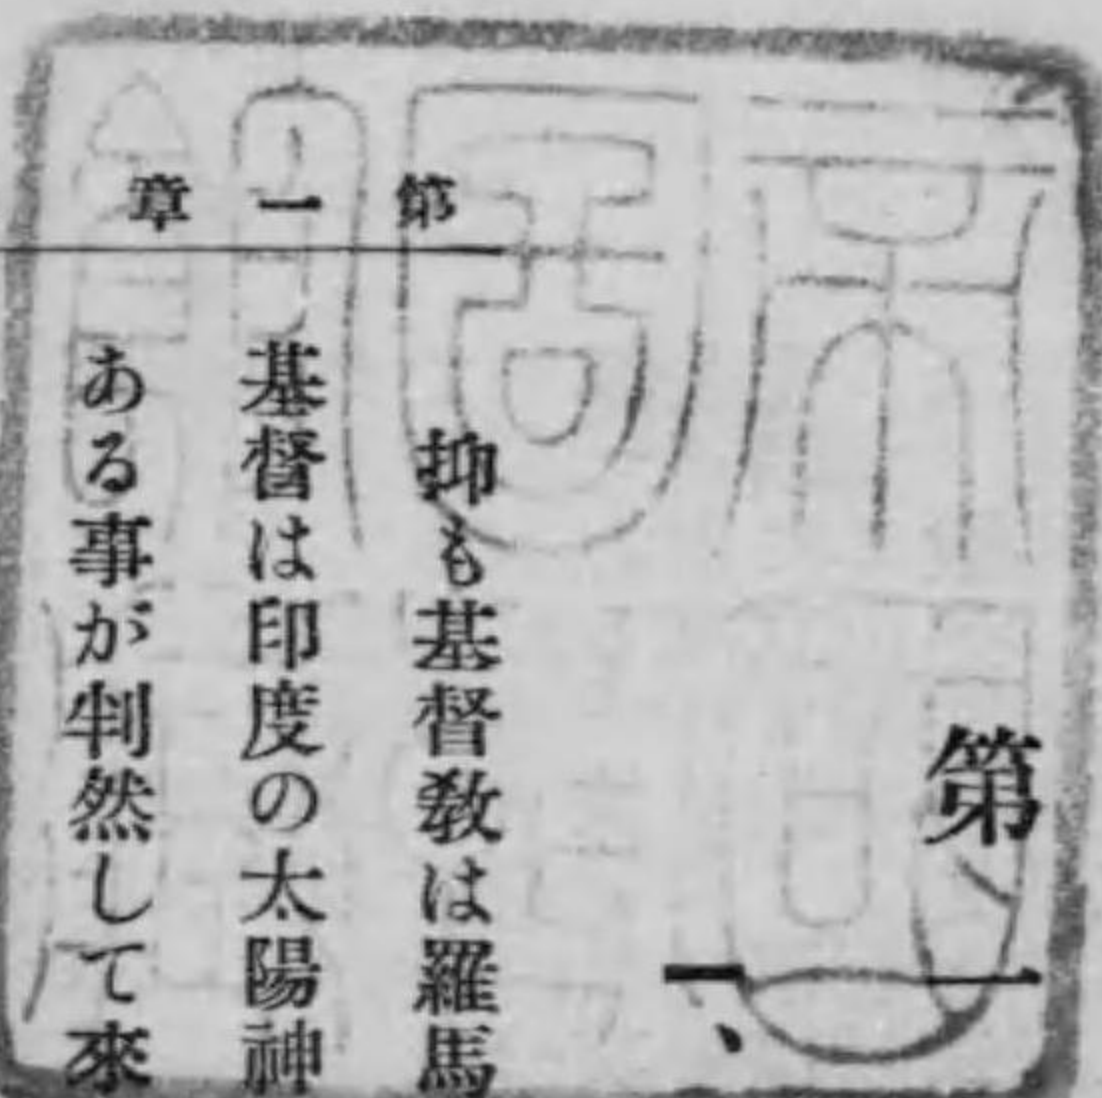 第一章
第一
一、
抑も基督教は羅馬
基督は印度の太陽神
ある事が判然して來